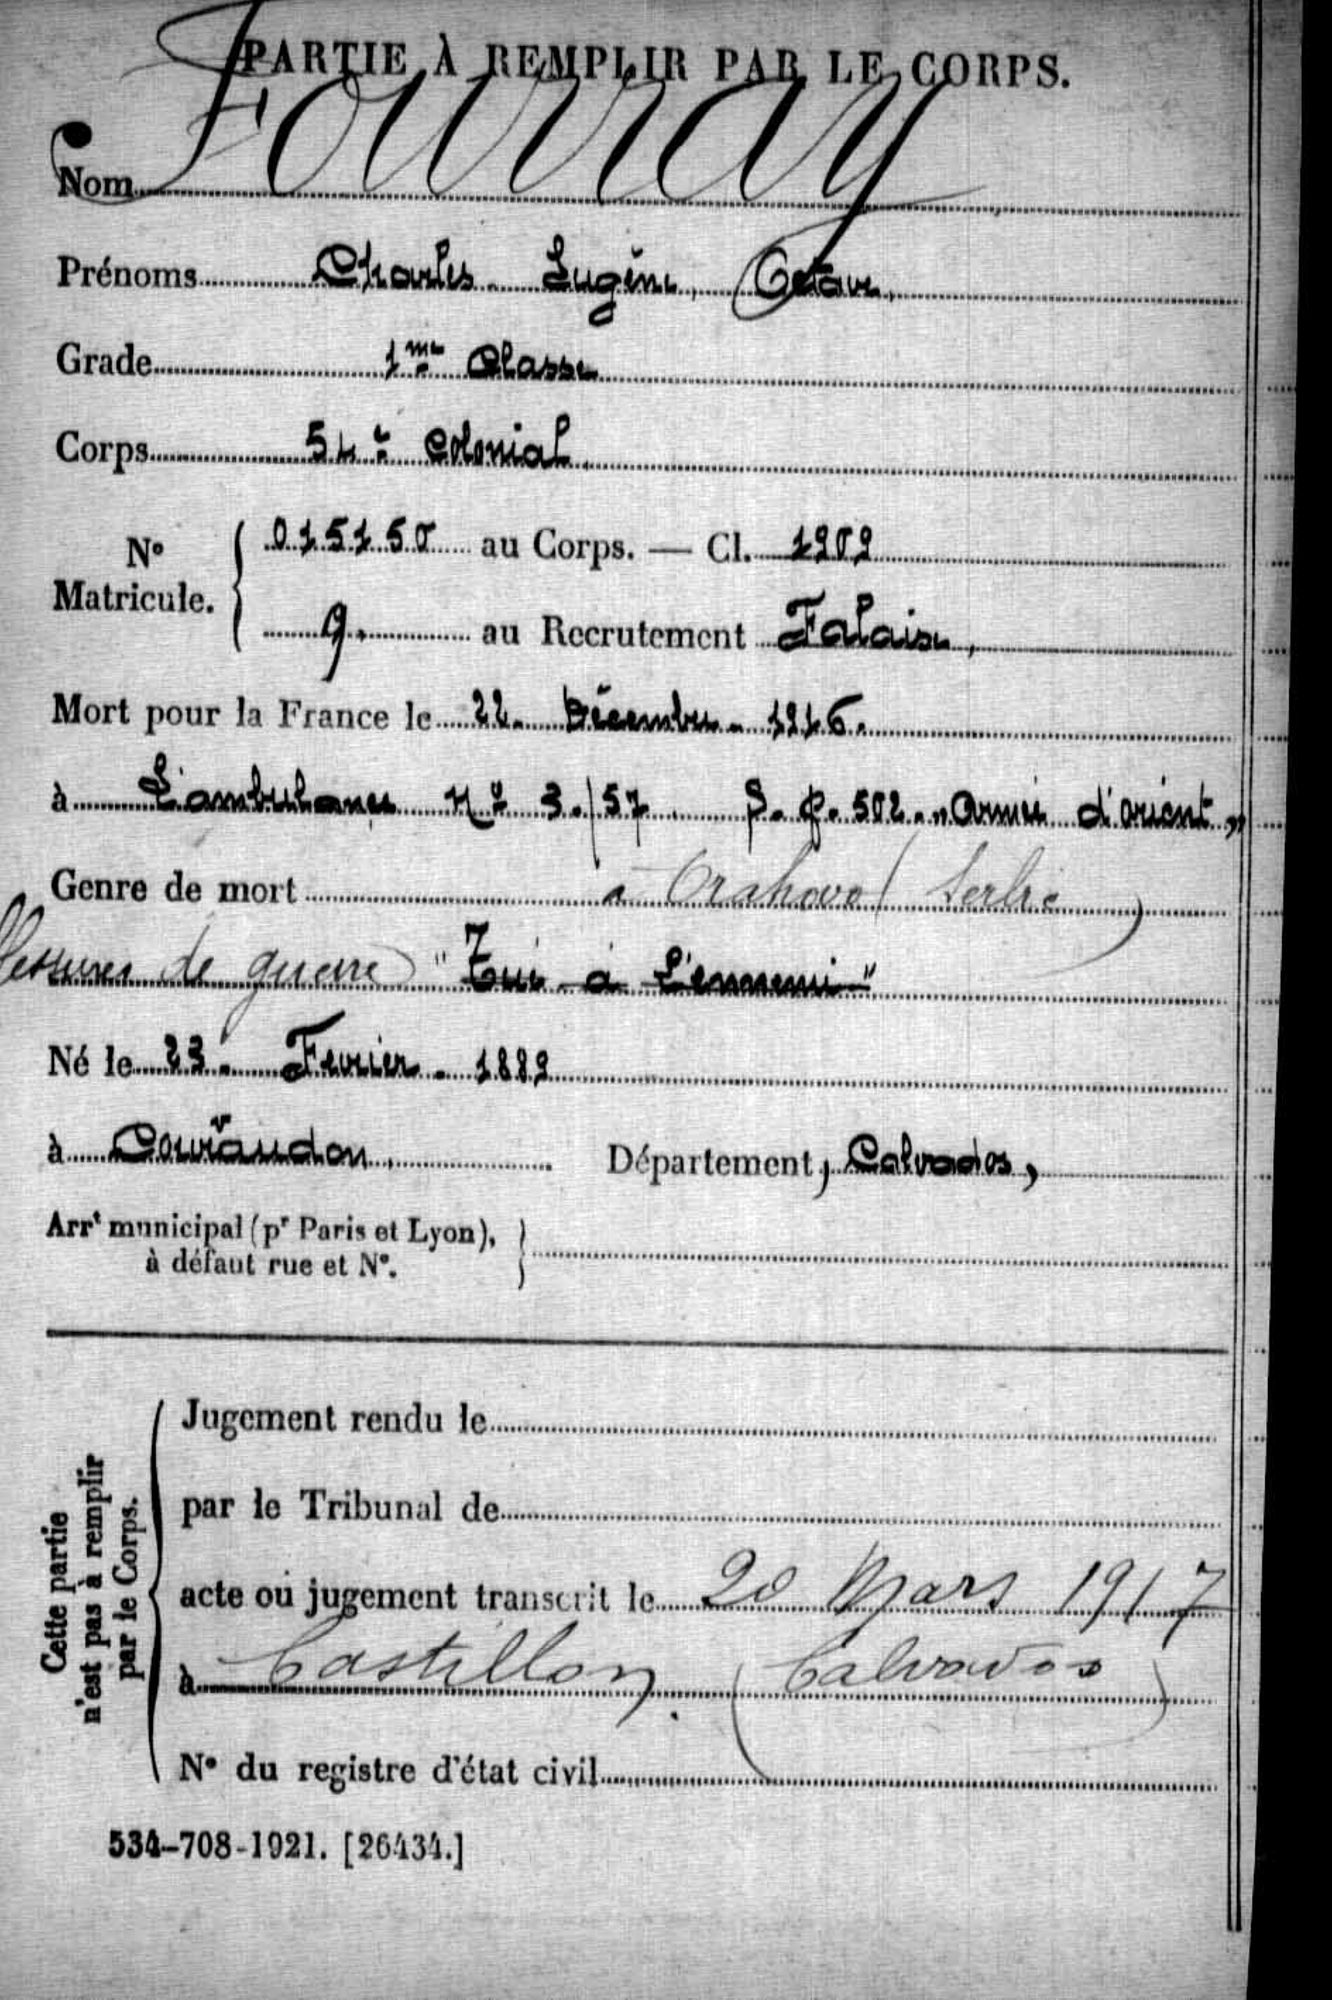 PARTIE À REMPLIR PAR LE CORPS.
Nom Fourray
Prénoms Charles. Eugène, Octave,
Grade 1me Classe
Corps 54e Colonial.
N° Matricule. { 015150 au Corps. — Cl. 1909
9. au Recrutement Falaise,
Mort pour la France le 22. Décembre. 1916.
à L'ambulance No 3./57 S. P. 502. "Armée d'orient"
Genre de mort à Orahovo (Serbie)
blessures de guerre "Tué à l'ennemi"
Né le 23. Fevrier. 1889
à Courvaudon, Département, Calvados,
Arrt municipal (pr Paris et Lyon),
à défaut rue et N°. }
Cette partie
n'est pas à remplir
par le Corps.
Jugement rendu le
par le Tribunal de
acte ou jugement transcrit le 20 Mars 1917
à Castillon. (Calvados)
N° du registre d'état civil
534-708-1921. [26434.]